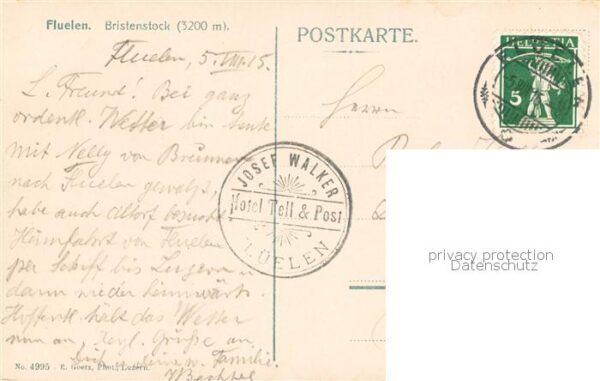 Fluelen. Bristenstock (3200 m).
POSTKARTE.
HELVETIA
5
Fluelen, 5. VIII. 15.
L. Freund! Bei ganz
ordentl. Wetter bin heute
mit Nelly von Brunnen
nach Fluelen
habe auch Altdorf besucht
Heimfahrt von Fluelen
per Schiff bis Luzern u.
dann wieder heimwärts.
Hoffentl. habt das Wetter
nun an. Herzl. Grüße an
Dich u. deine w. Familie.
Herrn
JOSEF WALKER
Hotel Tell & Post
FLÜELEN
privacy protection
Datenschutz
No. 4995 - E. Goetz, Phot., Luzern.